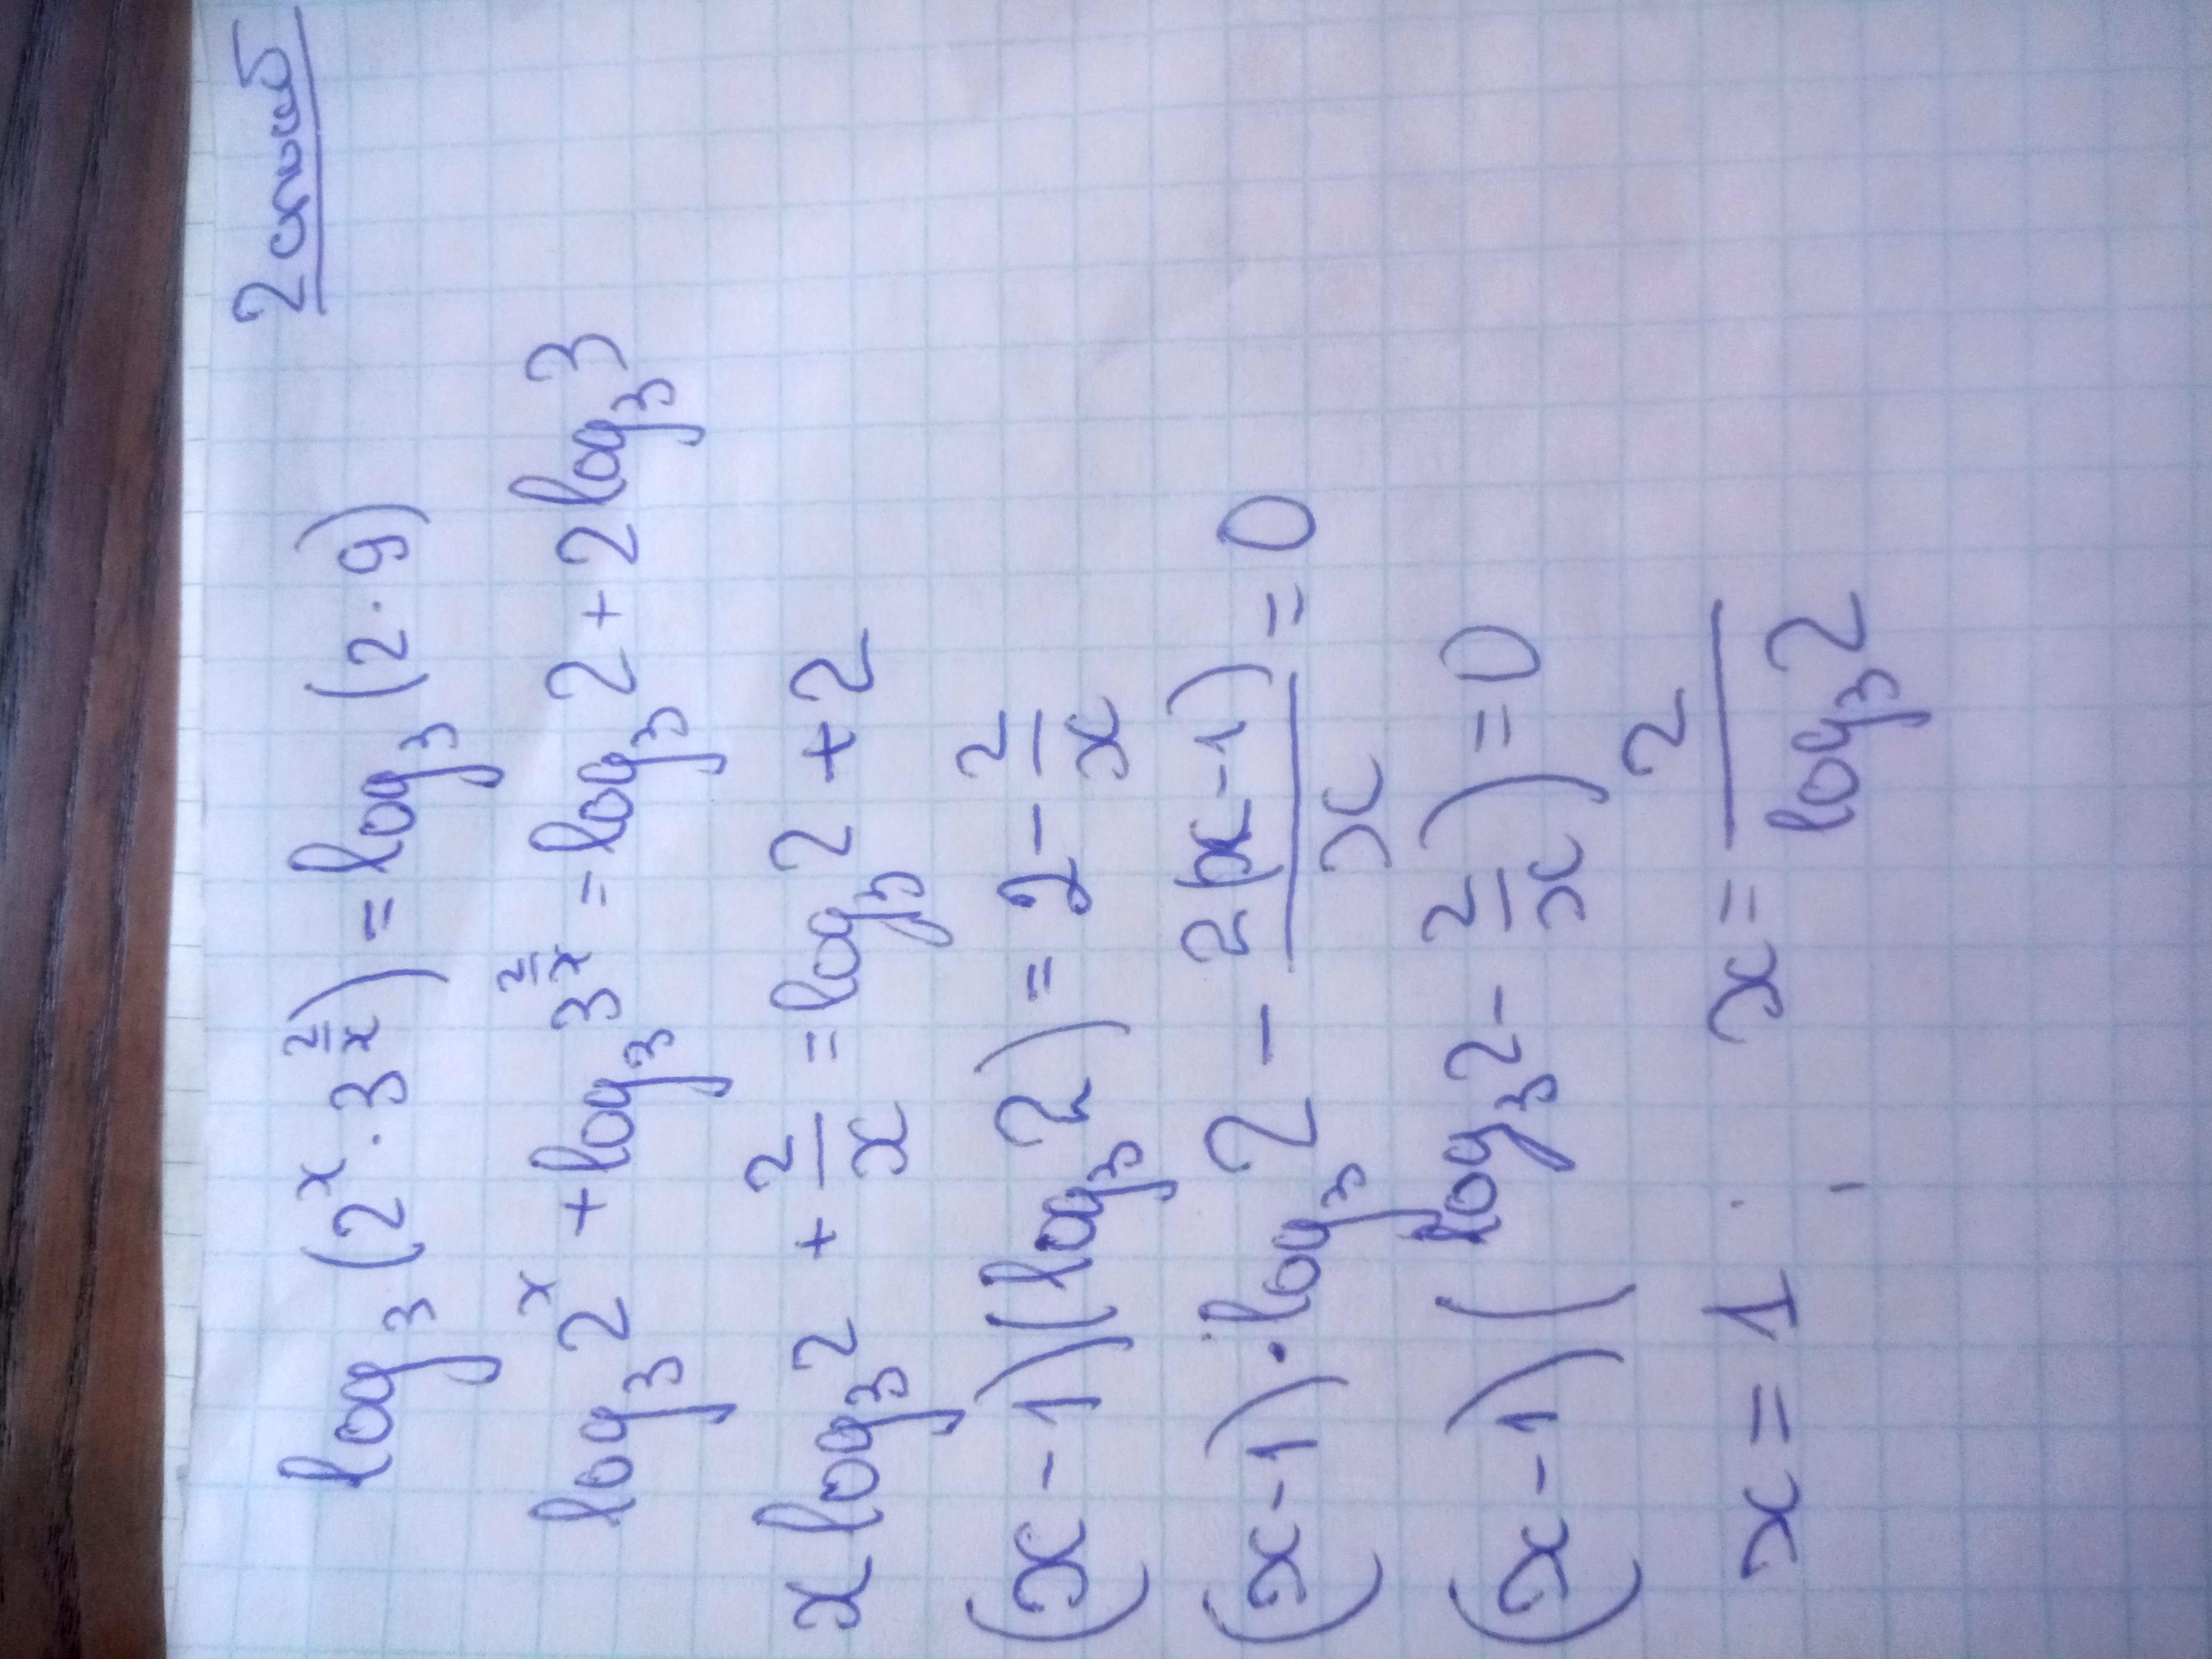 2 способ
log₃(2ˣ · 3^(2/x)) = log₃(2 · 9)
log₃2ˣ + log₃3^(2/x) = log₃2 + 2log₃3
x log₃2 + 2/x = log₃2 + 2
(x - 1)(log₃2) = 2 - 2/x
(x - 1) · log₃2 - 2(x - 1)/x = 0
(x - 1)(log₃2 - 2/x) = 0
x = 1 x = 2/log₃2